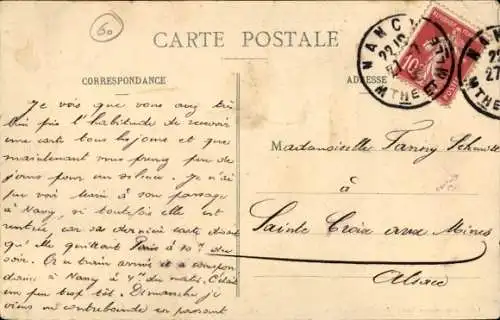 60
CARTE POSTALE
CORRESPONDANCE
ADRESSE
NANCY
NANCY
22
22
27
MTHE
MTHE
10
Je vois que vous avez très
bien pris l'habitude de recevoir
une carte tous les jours et que
maintenant vous prenez peu de
jours pour un silence. Je n'ai
pu voir Marie à son passage
à Nancy, si toutefois elle est
rentrée, car sa dernière carte disait
qu'elle quittait Paris à 10h du
soir. Or ce train arrive
à Nancy à 4h du matin. C'était
un peu trop tôt. Dimanche j'ai
en passant
Mademoiselle Fanny Schmitt
à
Sainte Croix aux Mines
Alsace